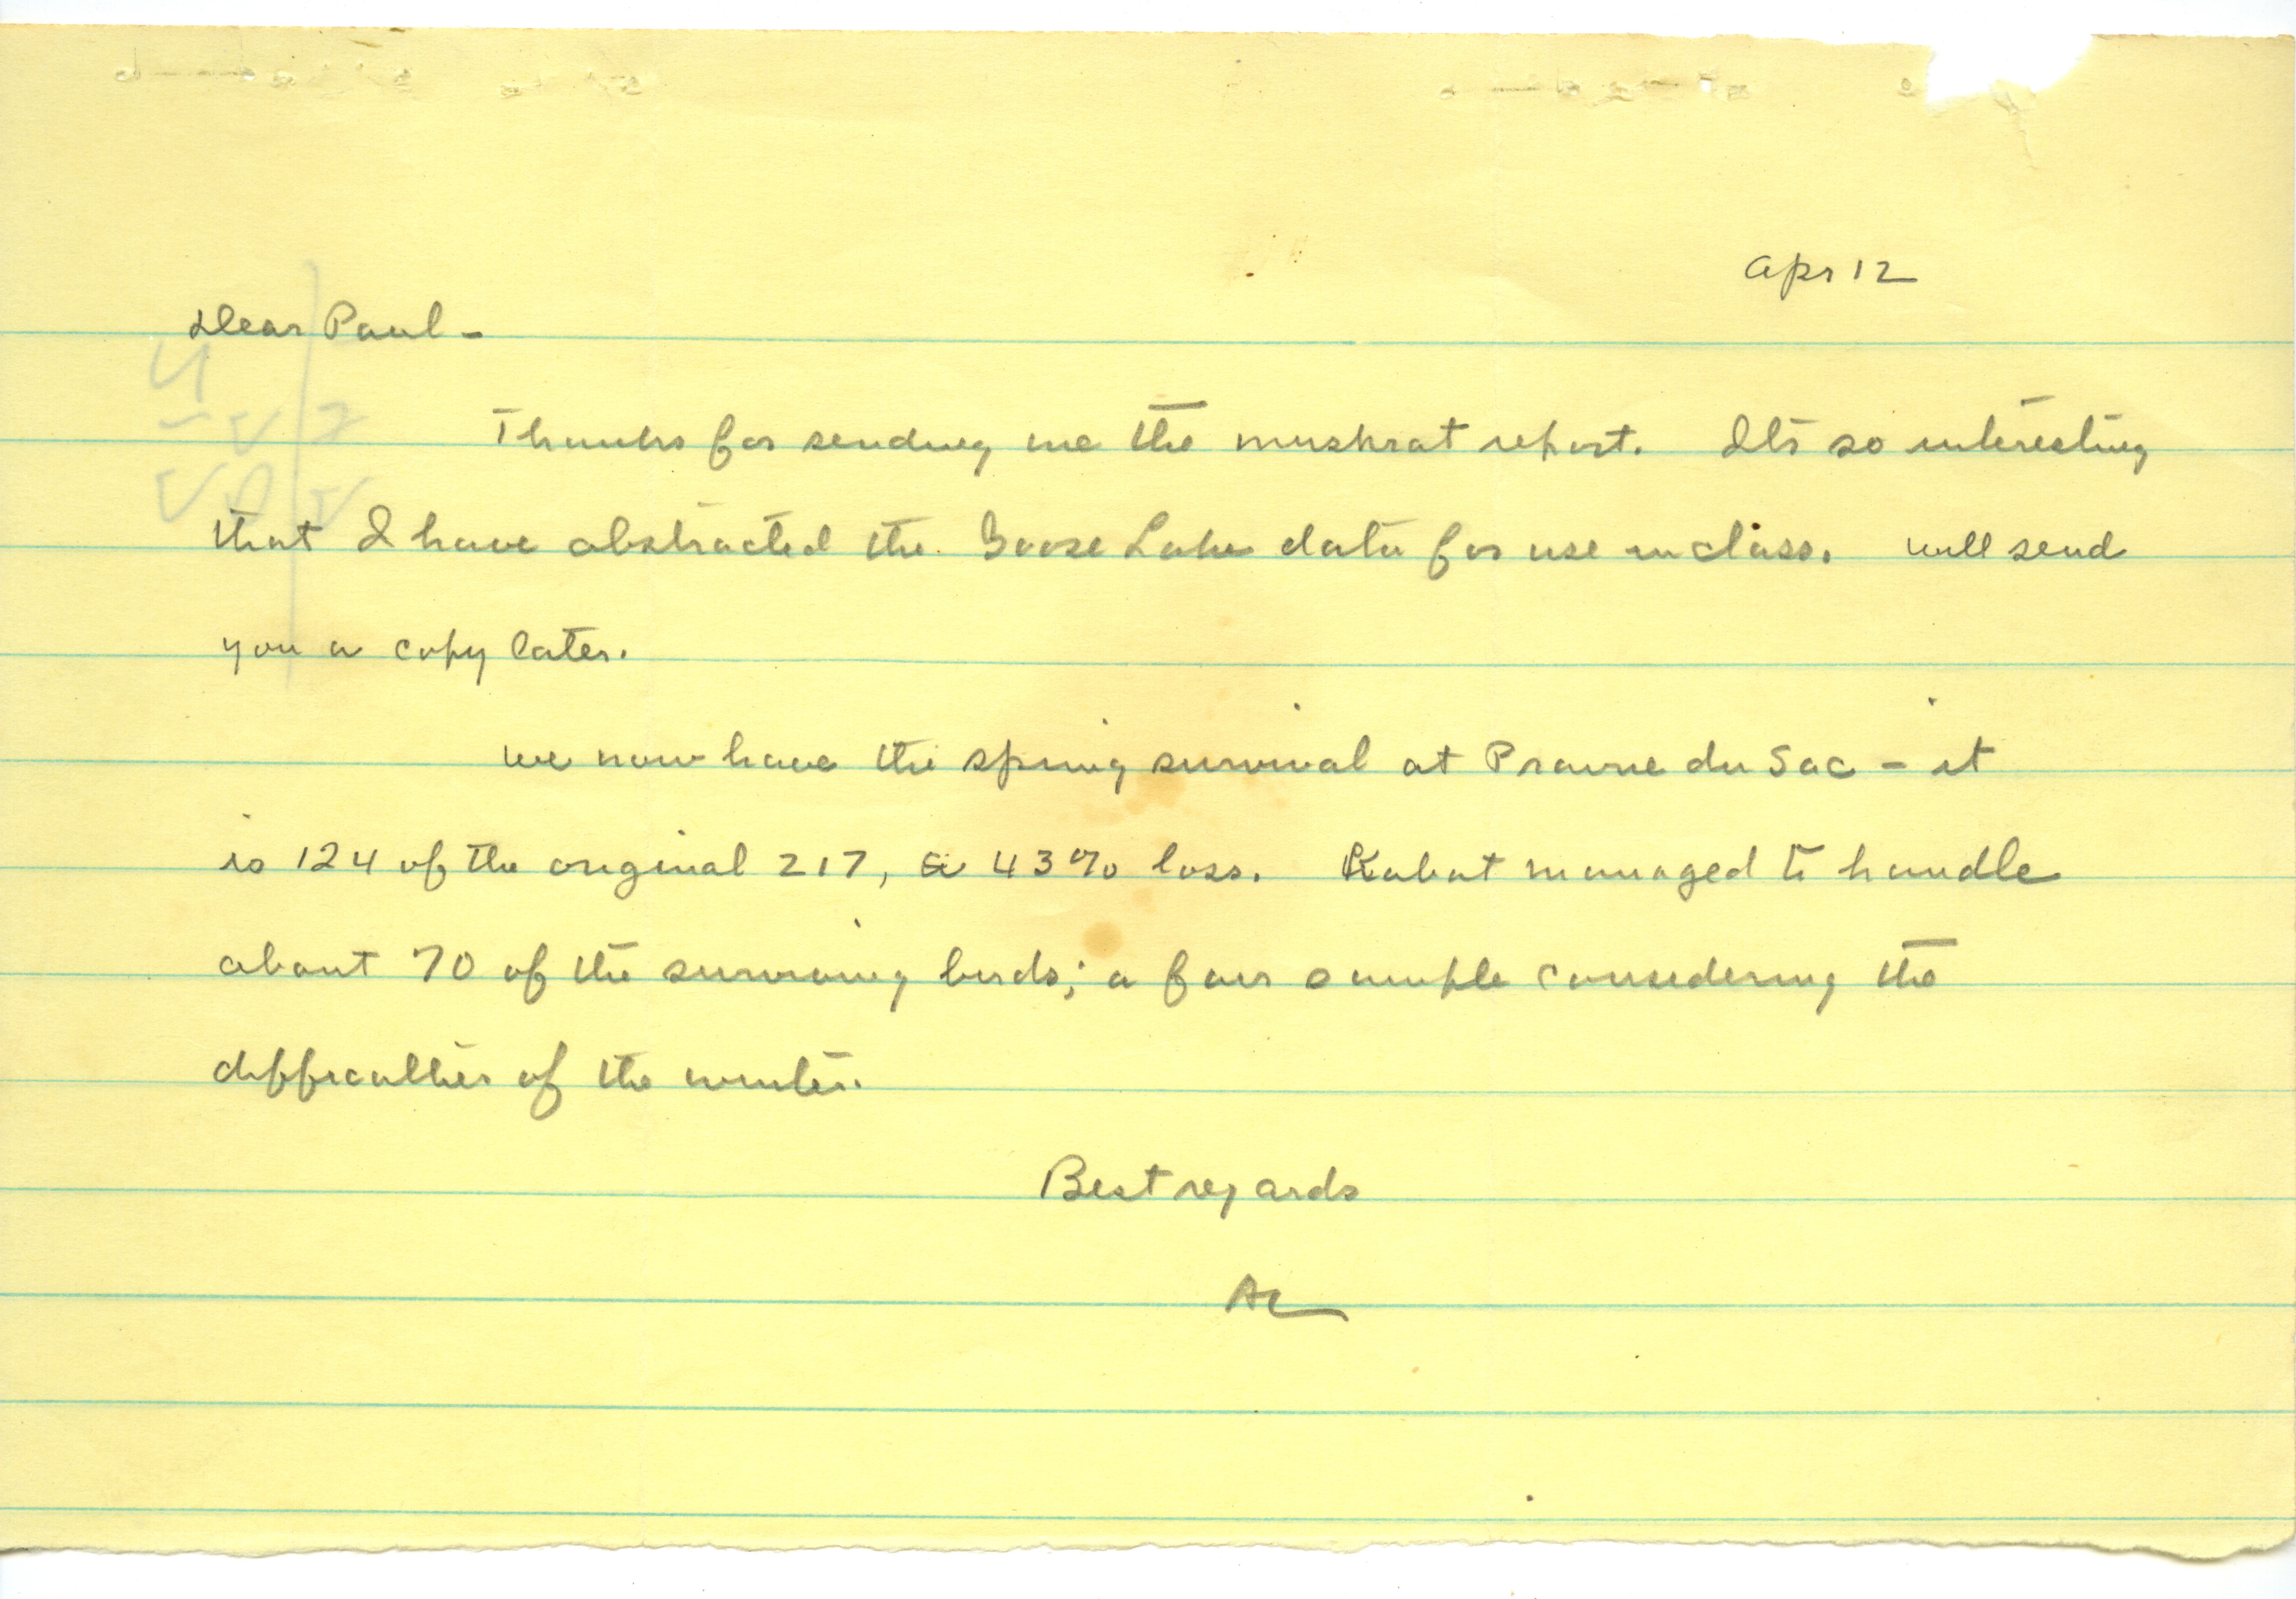 Apr 12
Dear Paul -
Thanks for sending me the muskrat report. Its so interesting
that I have abstracted the Goose Lake data for use in class. Will send
you a copy later.
We now have the spring survival at Prairie du Sac - it
is 124 of the original 217, a 43% loss. Kabat managed to handle
about 70 of the surviving birds; a fair sample considering the
difficulties of the winter.
Best regards
AL